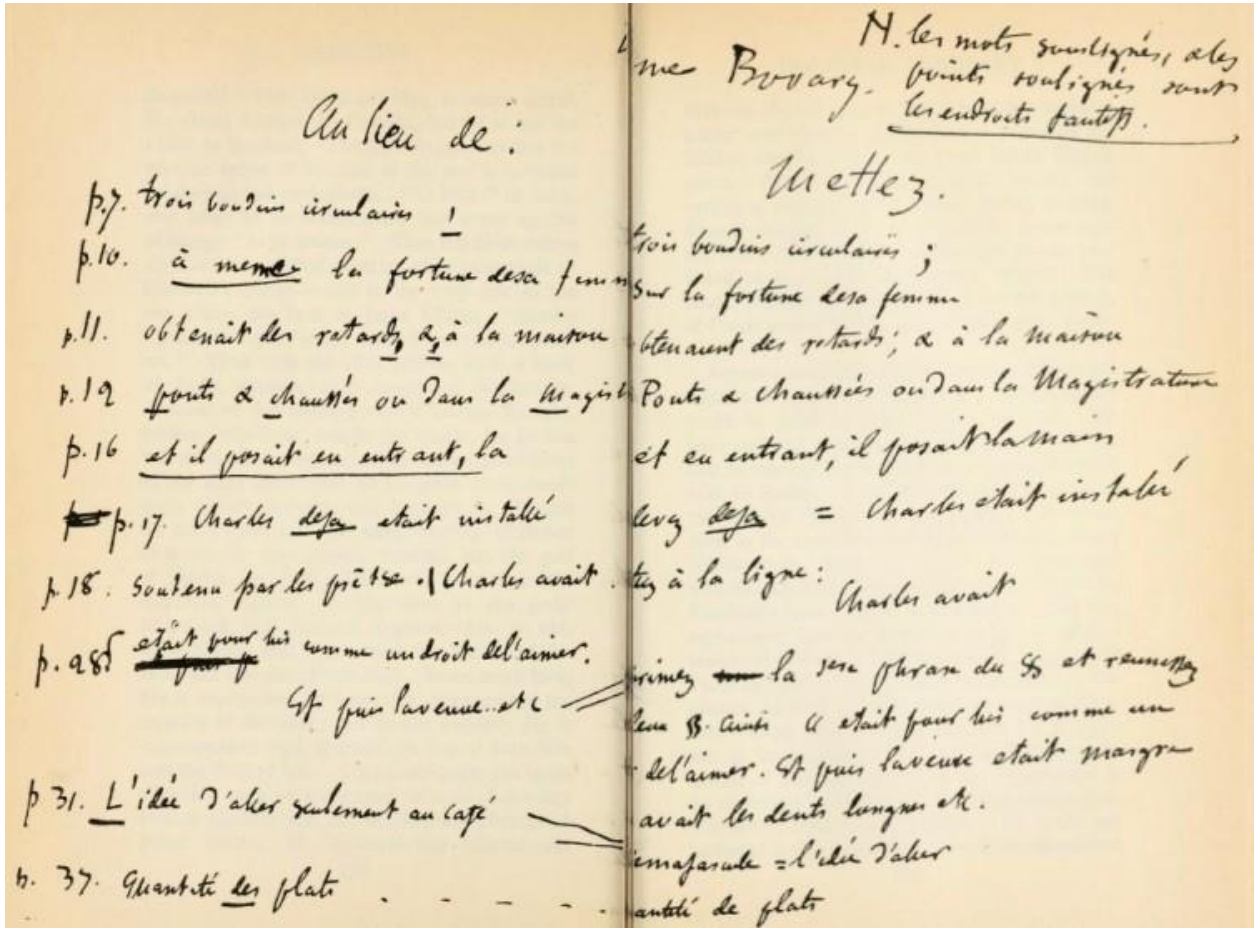 Au lieu de :
p.7. trois boudins circulaires ,
p.10. à meme la fortune de sa femm
p.11. obtenait des retards, &, à la maison
p.12 ponts & chaussés ou dans la magist
p.16 et il posait en entrant, la
p.17. Charles deja etait installé
p.18. Soutenu par les prêtre . | Charles avait
p. 28 etait pour lui comme un droit de l'aimer.
Et puis la veuve .. etc
p 31. L'idée d'aller seulement au café
p. 37. Quantité des plats - - - -
me Bovary.
N. les mots soulignés, & les
points soulignés sont
les endroits fautifs.
Mettez.
trois boudins circulaires ;
sur la fortune de sa femme
btenaient des retards; & à la maison
Ponts & chaussées ou dans la Magistrature
et en entrant, il posait la main
levez deja = Charles etait installé
tez à la ligne :
Charles avait
primez la 1ere phrase du § et reunissez
deux §. ainsi etait pour lui comme un
de l'aimer. Et puis la veuve etait maigre
avait les dents longues etc.
l'idée d'aller
antité de plats